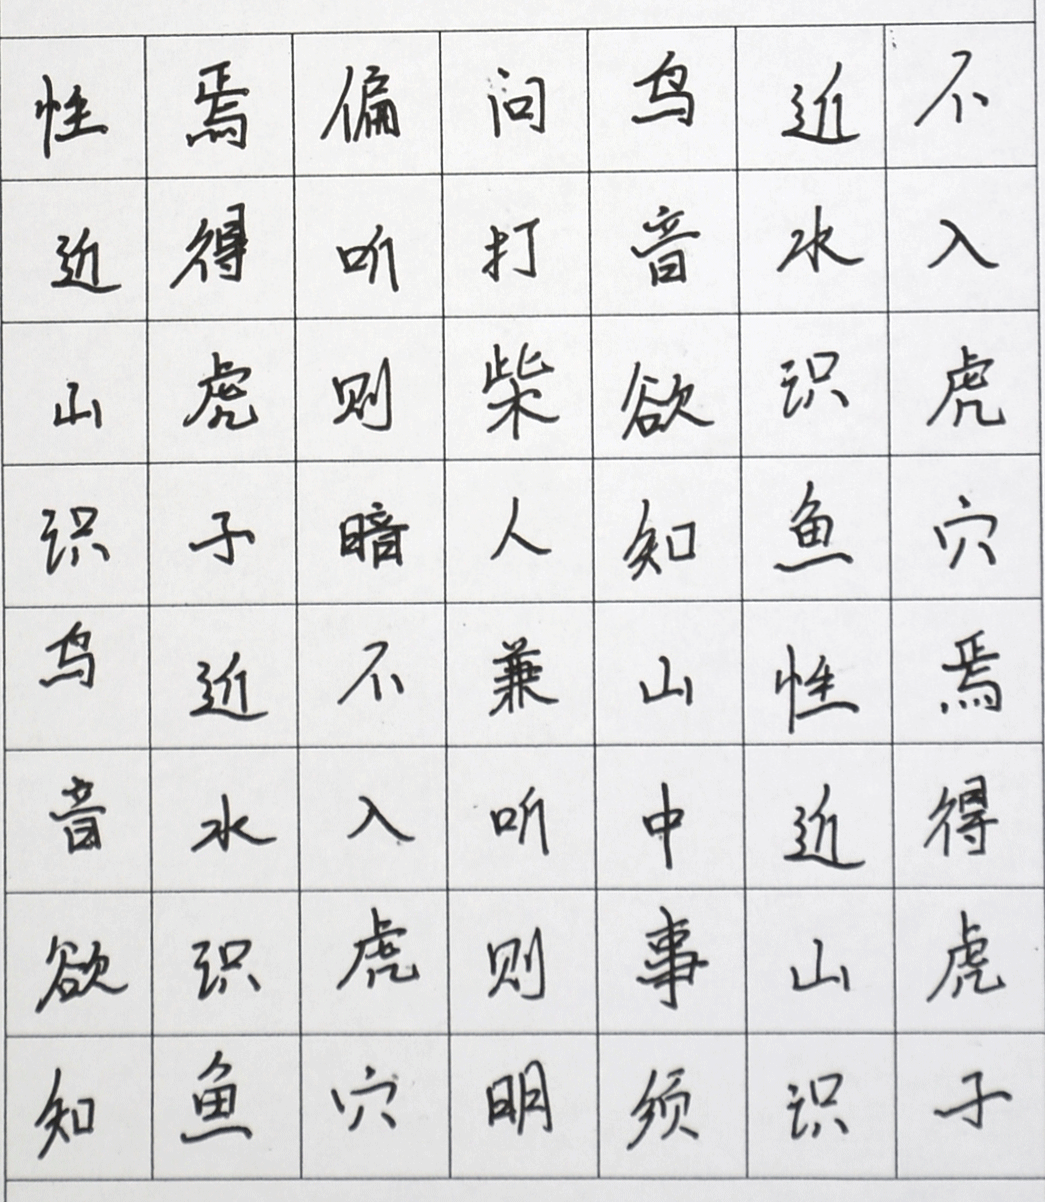 不入虎穴焉得虎子
近水识鱼性近山识
鸟音欲知山中事须
问打柴人兼听则明
偏听则暗不入虎穴
焉得虎子近水识鱼
性近山识鸟音欲知